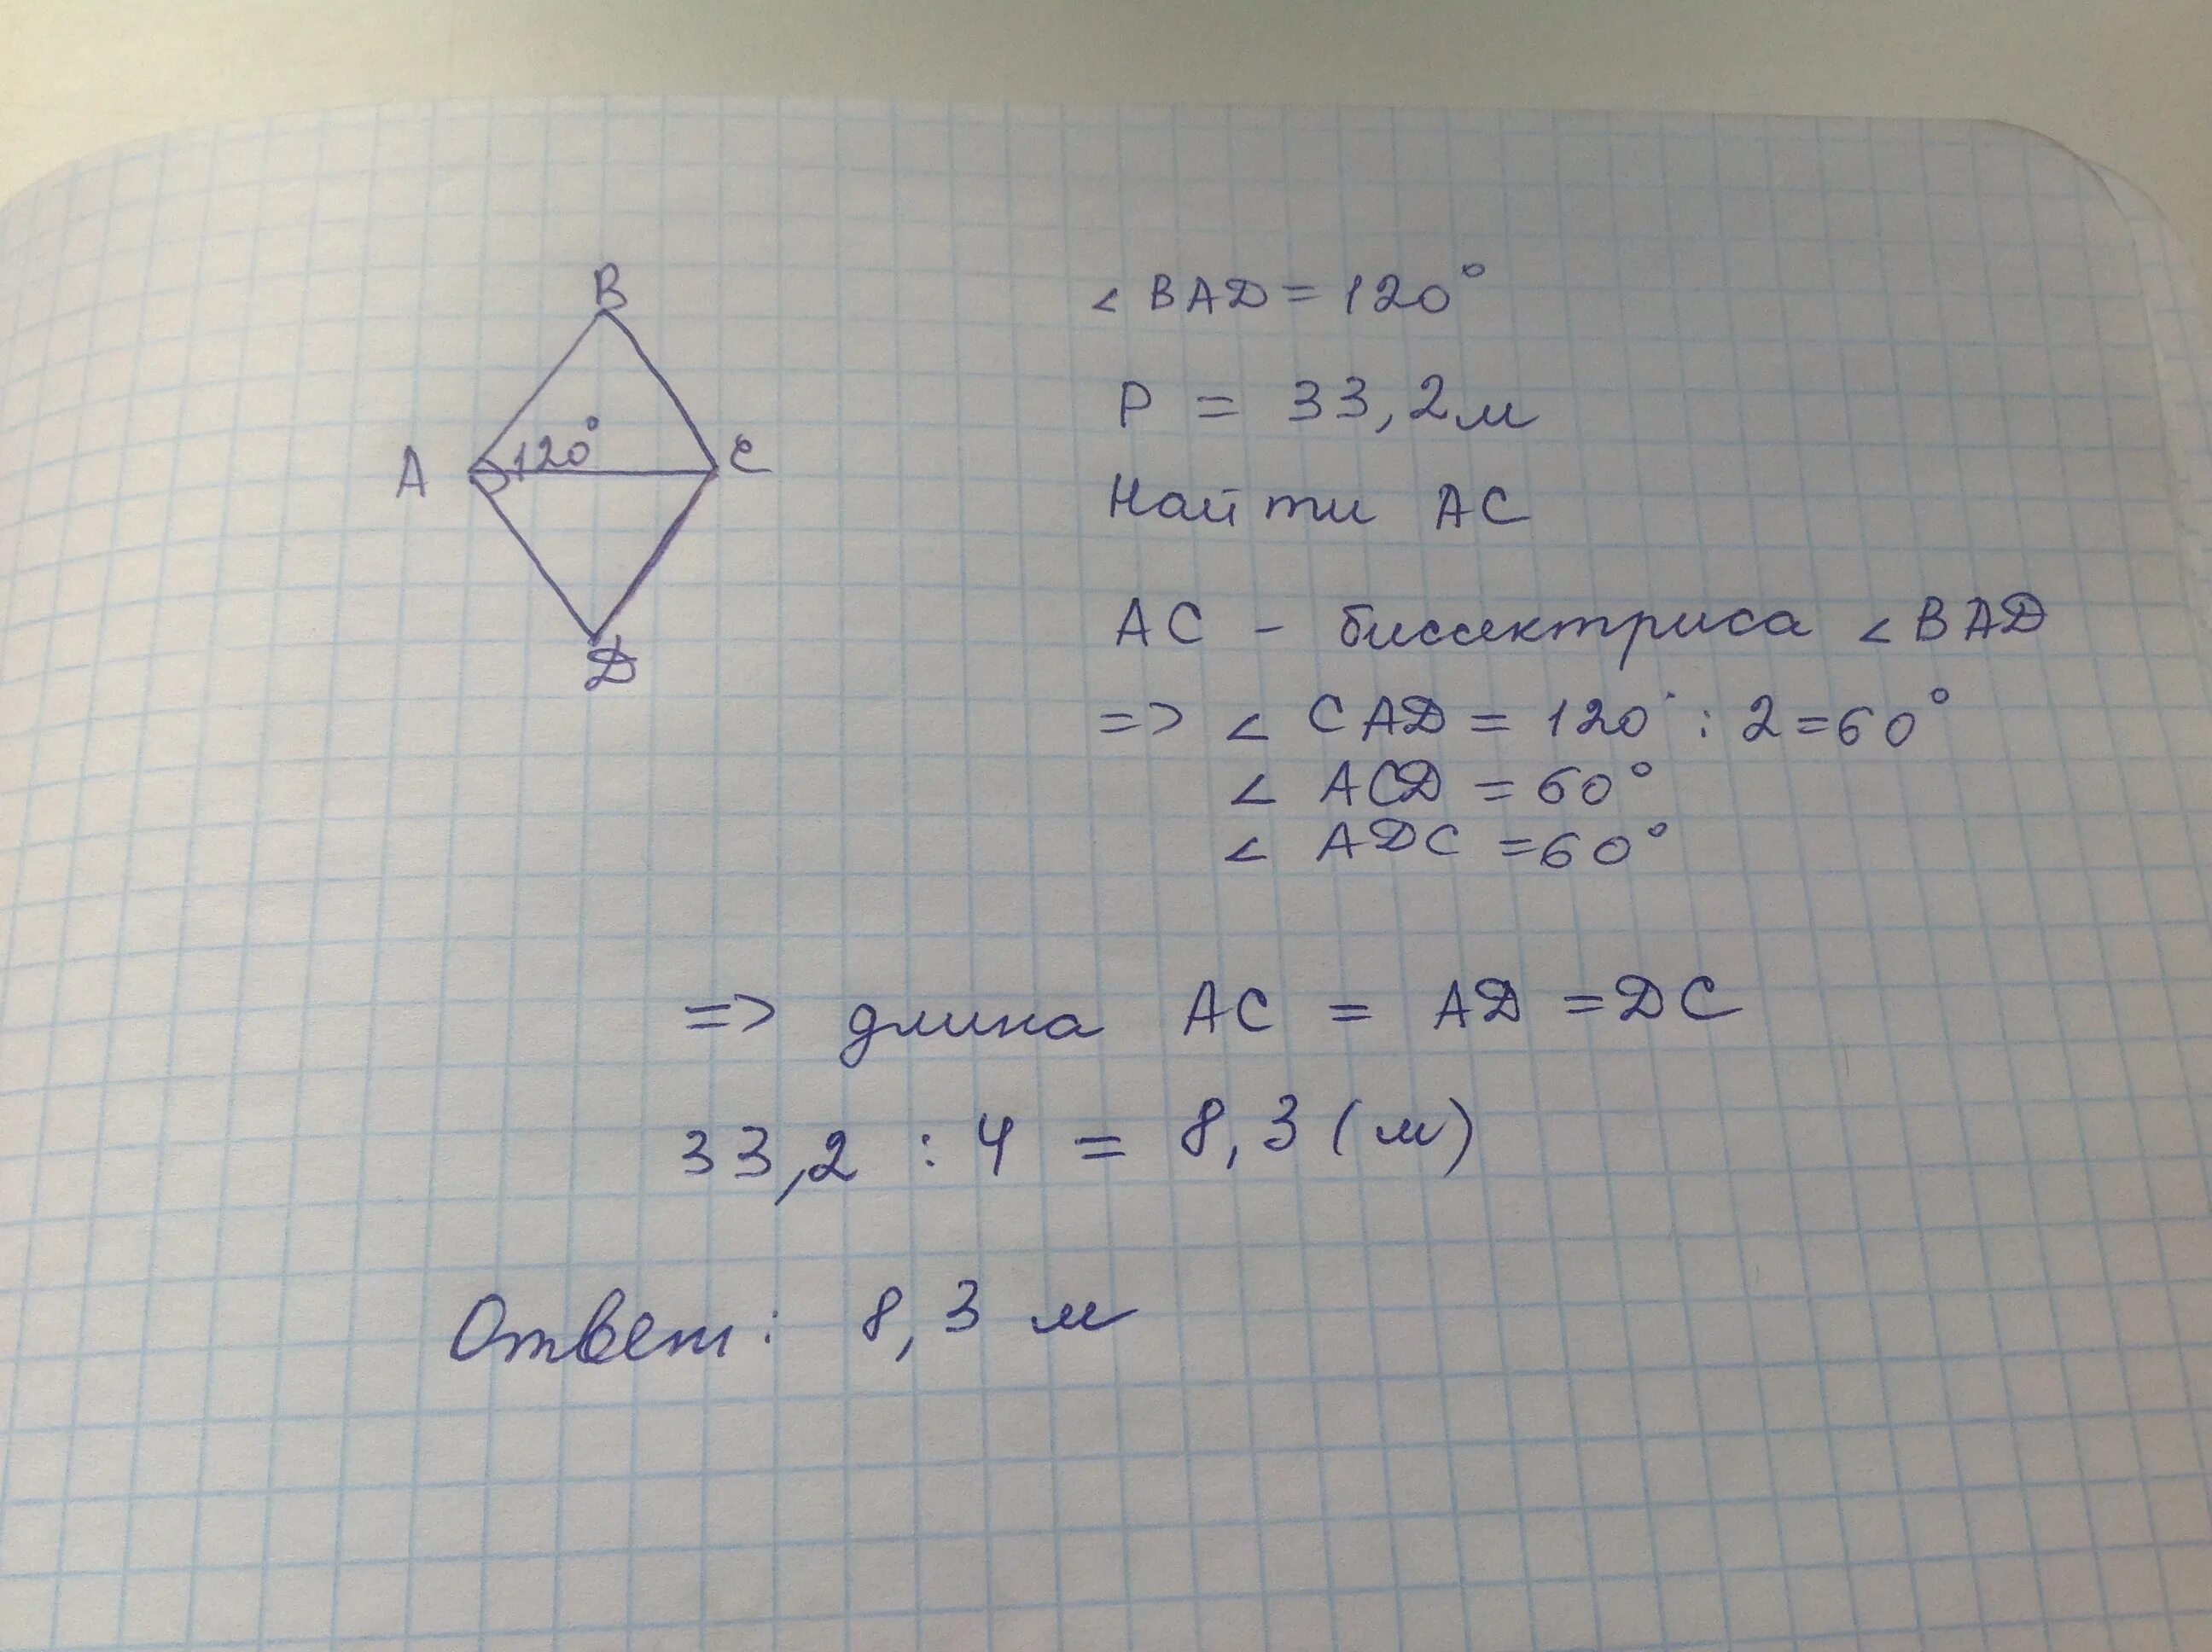 B
A
120°
C
D
∠ BAD = 120°
P = 33,2м
Найти AC
AC - биссектриса ∠ BAD
=> ∠ CAD = 120° : 2 = 60°
∠ ACD = 60°
∠ ADC = 60°
=> длина AC = AD = DC
33,2 : 4 = 8,3 (м)
Ответ: 8,3 м